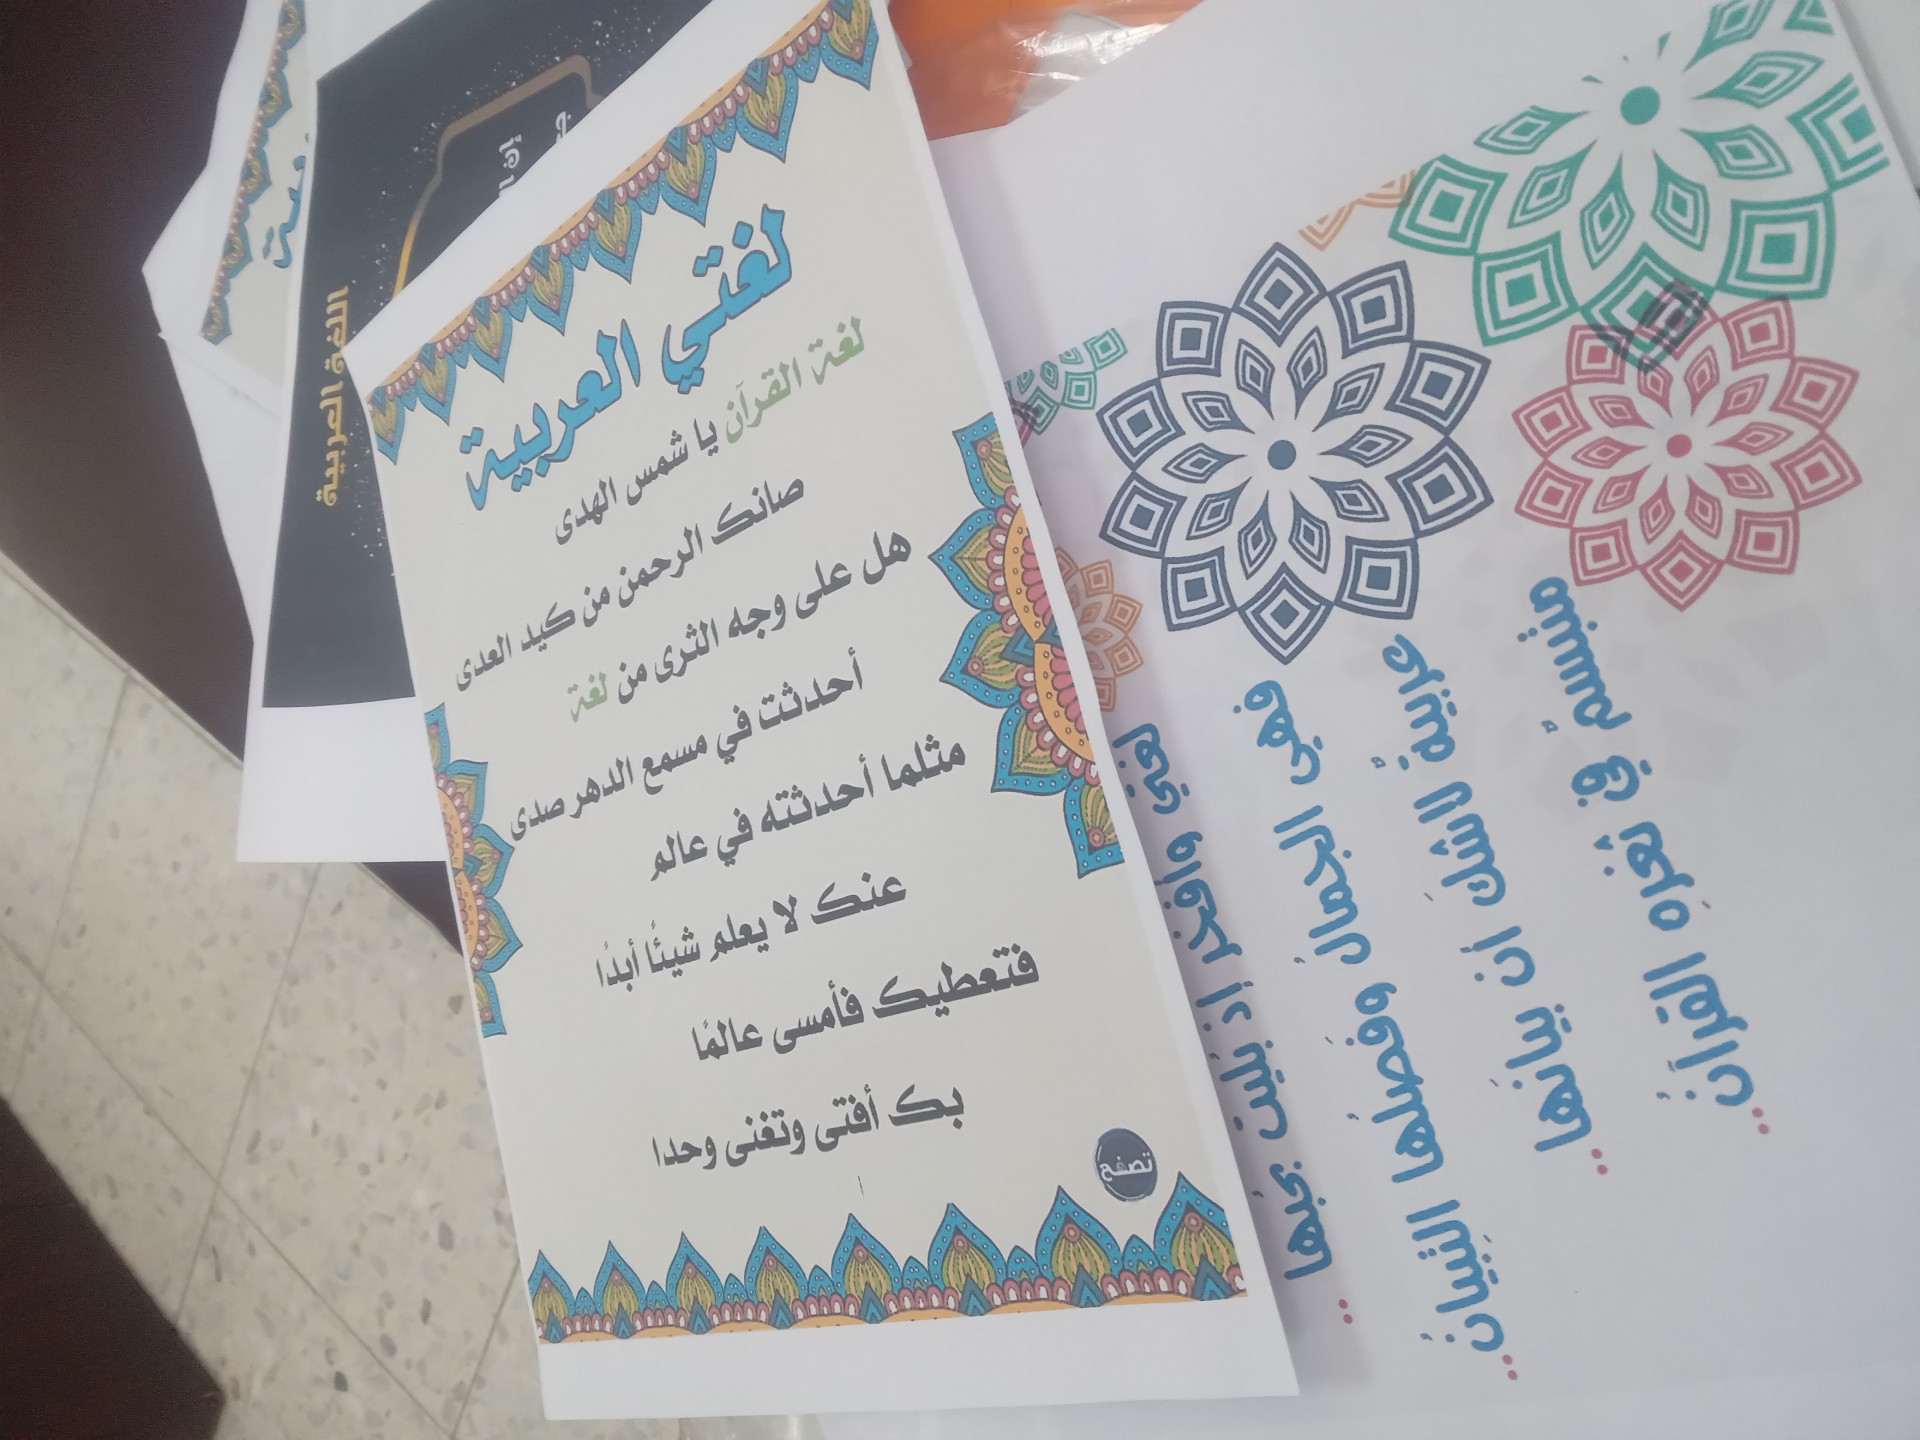 لغتي العربية
لغة القرآن يا شمس الهدى
صانك الرحمن من كيد العدى
هل على وجه الثرى من لغة
أحدثت في مسمع الدهر صدى
مثلما أحدثته في عالم
عنك لا يعلم شيئًا أبدًا
فتعطيك فأمسى عالمًا
بك أفتى وتغنى وحدا
تصفح
لغتي وأفخر إذ بليت بحبها ..
فهي الجمال وفصلها التبيان ..
عربية لاشك أن بيانها ..
متبسم في ثغره القرآن ..
اللغة العربية
إن